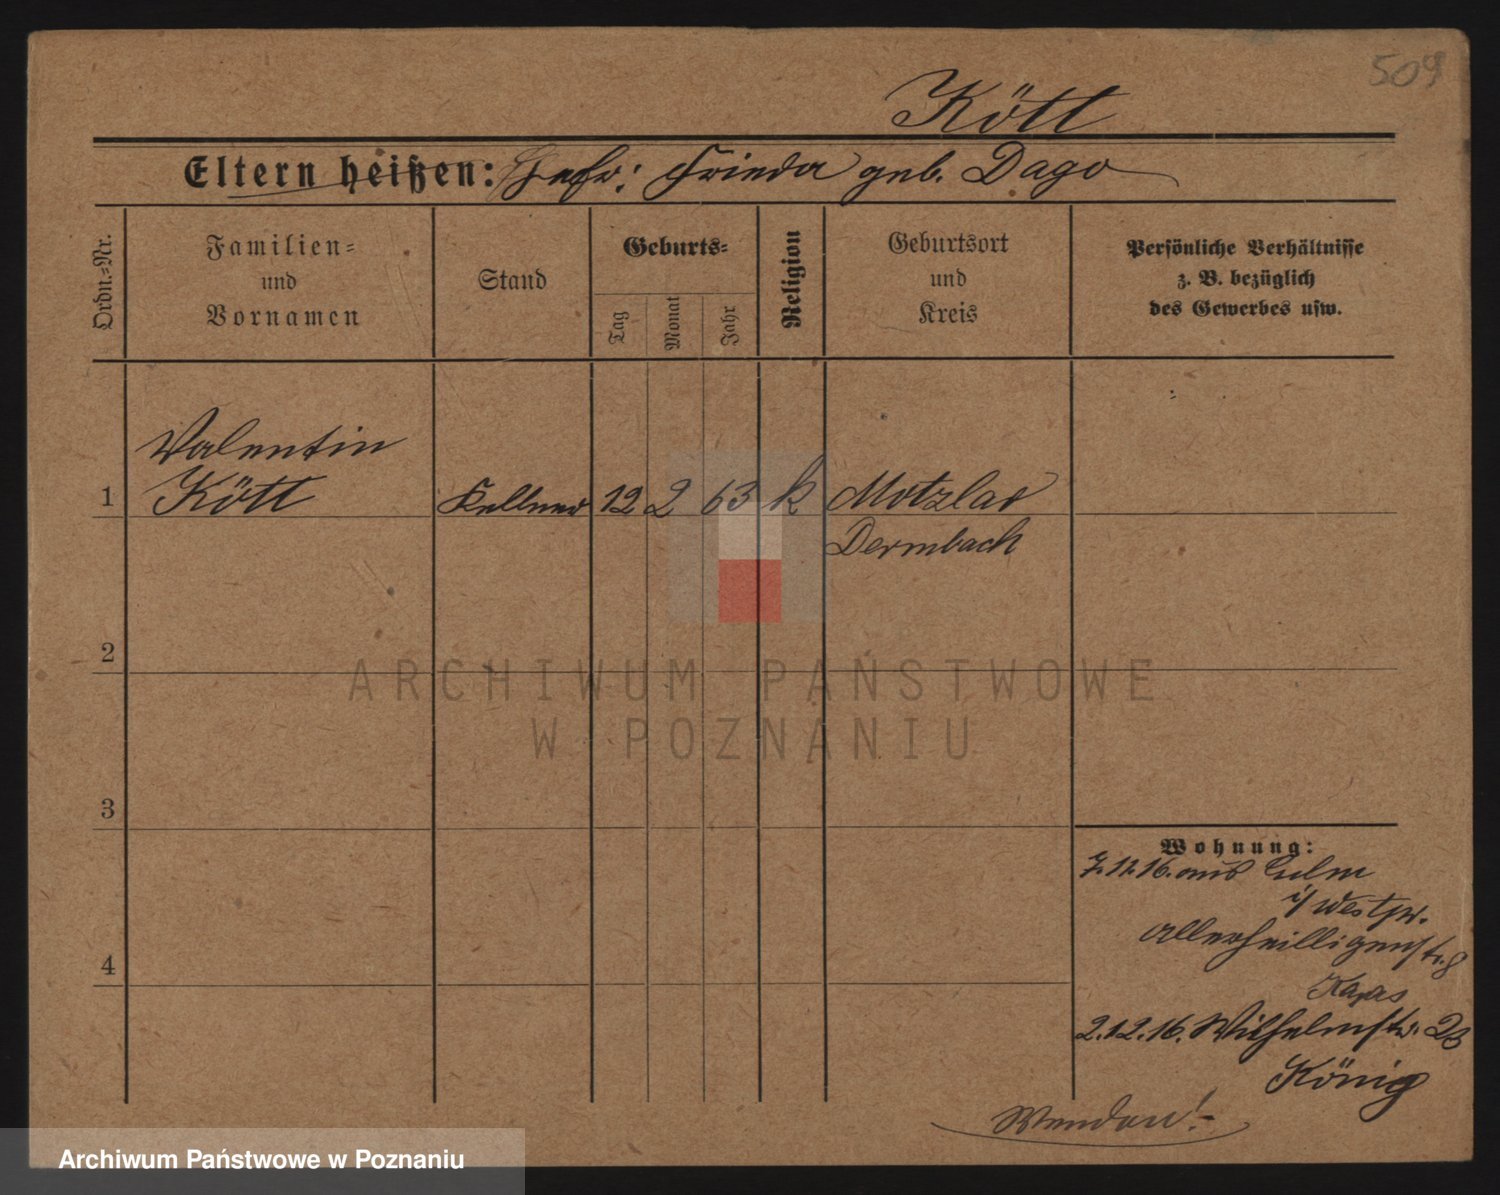 509
Kött
Eltern heißen: Ehefr: Frieda geb. Dago
Ordn.=Nr.
Familien=
und
Vornamen
Stand
Geburts=
Tag
Monat
Jahr
Religion
Geburtsort
und
Kreis
Persönliche Verhältnisse
z. B. bezüglich
des Gewerbes usw.
Valentin
1 Kött Kellner 12 2 63 k Motzlar
Dermbach
2
ARCHIWUM PAŃSTWOWE
W POZNANIU
3
Wohnung:
7.11.16. aus Culm
i/ Westpr.
Allerheilligenstr. 8
4
2.12.16. Wilhelmstr. 26
König
Wenden!
Archiwum Państwowe w Poznaniu